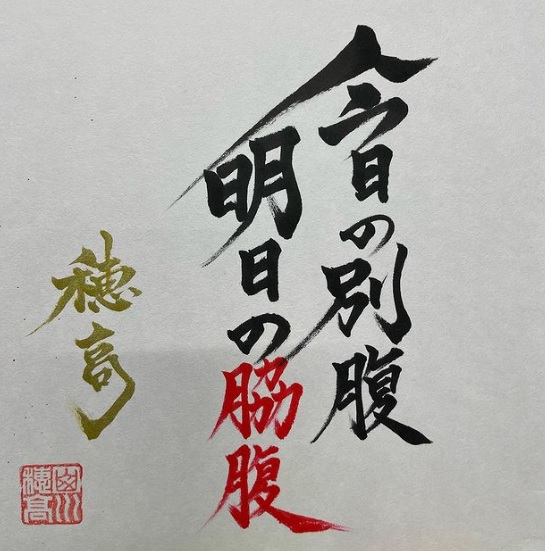 今日の別腹
明日の脇腹
穂高